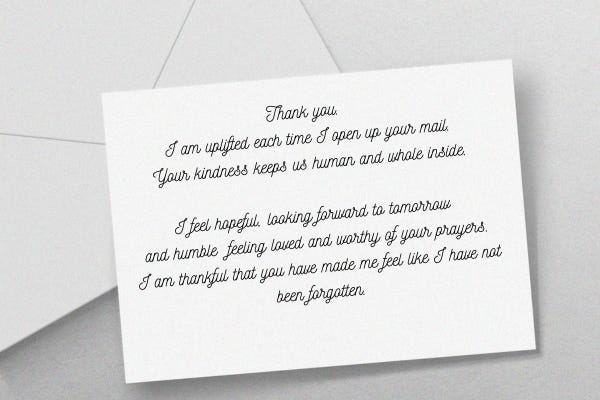 Thank you.
I am uplifted each time I open up your mail.
Your kindness keeps us human and whole inside.
I feel hopeful, looking forward to tomorrow
and humble feeling loved and worthy of your prayers.
I am thankful that you have made me feel like I have not
been forgotten.